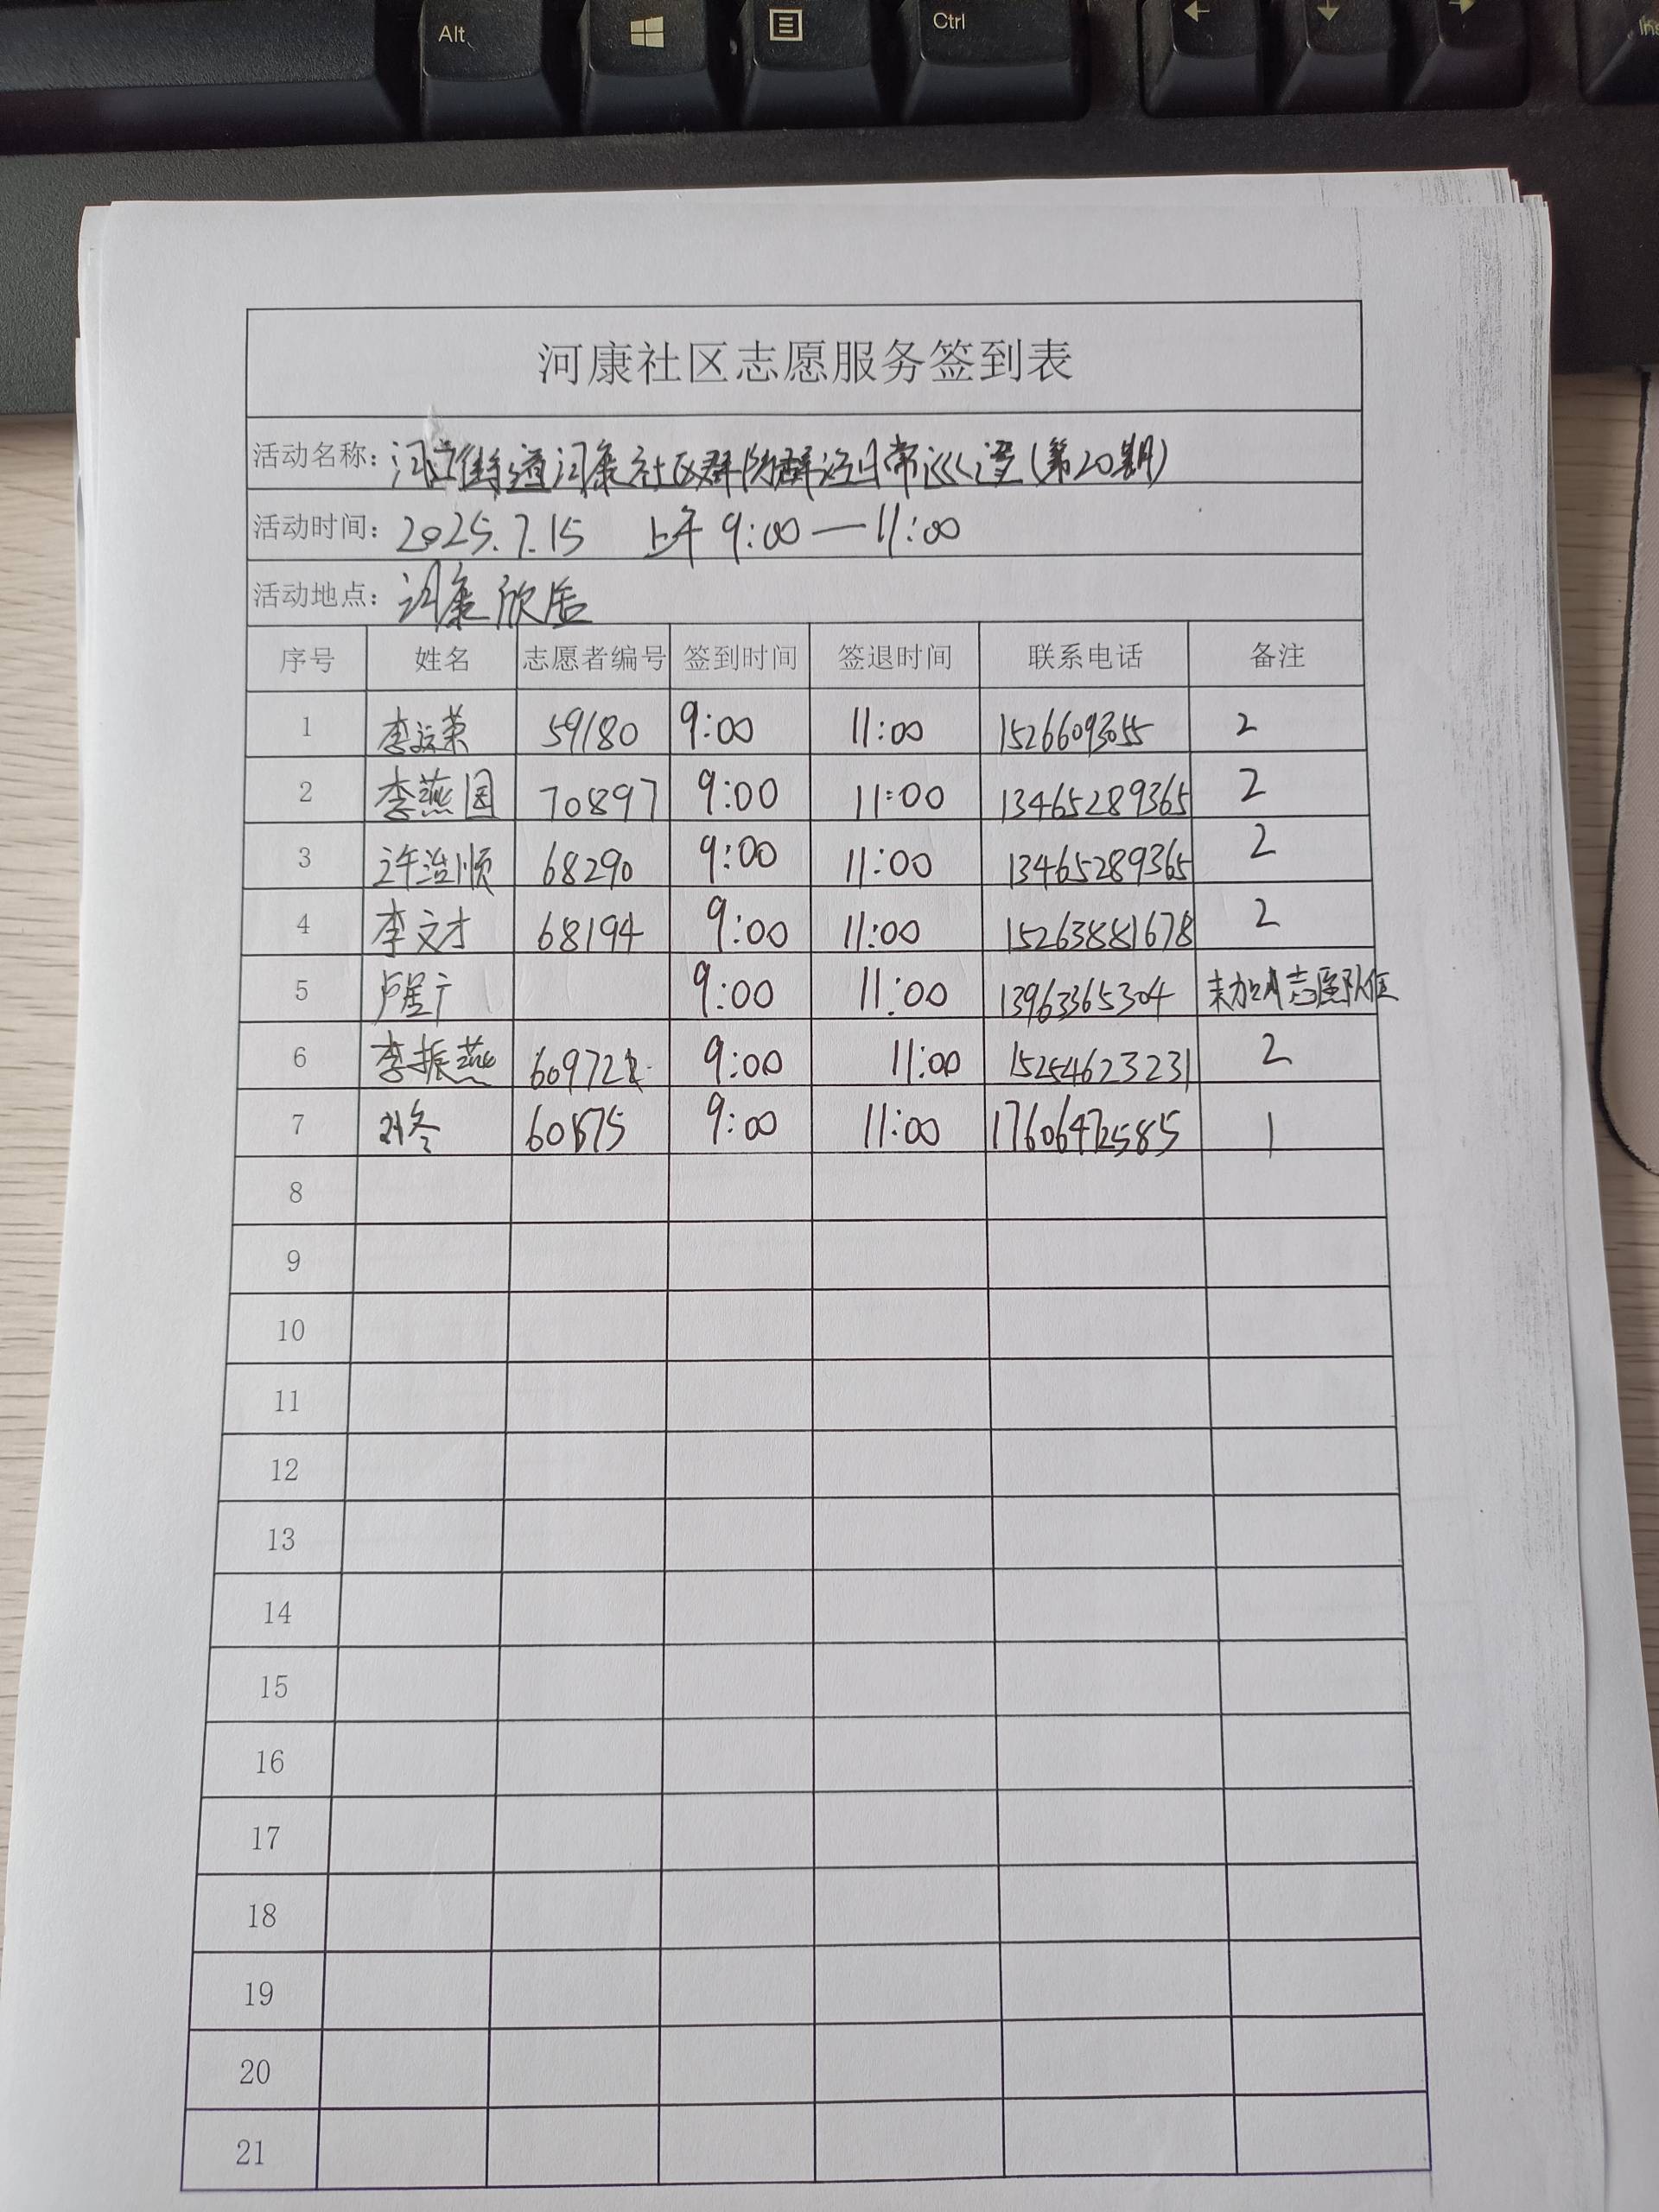 Alt
Ctrl
Ins
河康社区志愿服务签到表
活动名称：河立街道河康社区群防群治日常巡逻(第20期)
活动时间：2025.7.15 上午 9:00—11:00
活动地点：河康欣居
序号 姓名 志愿者编号 签到时间 签退时间 联系电话 备注
1 李运荣 59180 9:00 11:00 15266093055 2
2 李燕园 70897 9:00 11:00 13465289365 2
3 许治顺 68290 9:00 11:00 13465289365 2
4 李文才 68194 9:00 11:00 15263881678 2
5 卢星广 9:00 11:00 13963365304 未加入志愿队伍
6 李振燕 9:00 11:00 15254623231 2
7 刘冬 9:00 11:00 17606472585 1
8
9
10
11
12
13
14
15
16
17
18
19
20
21